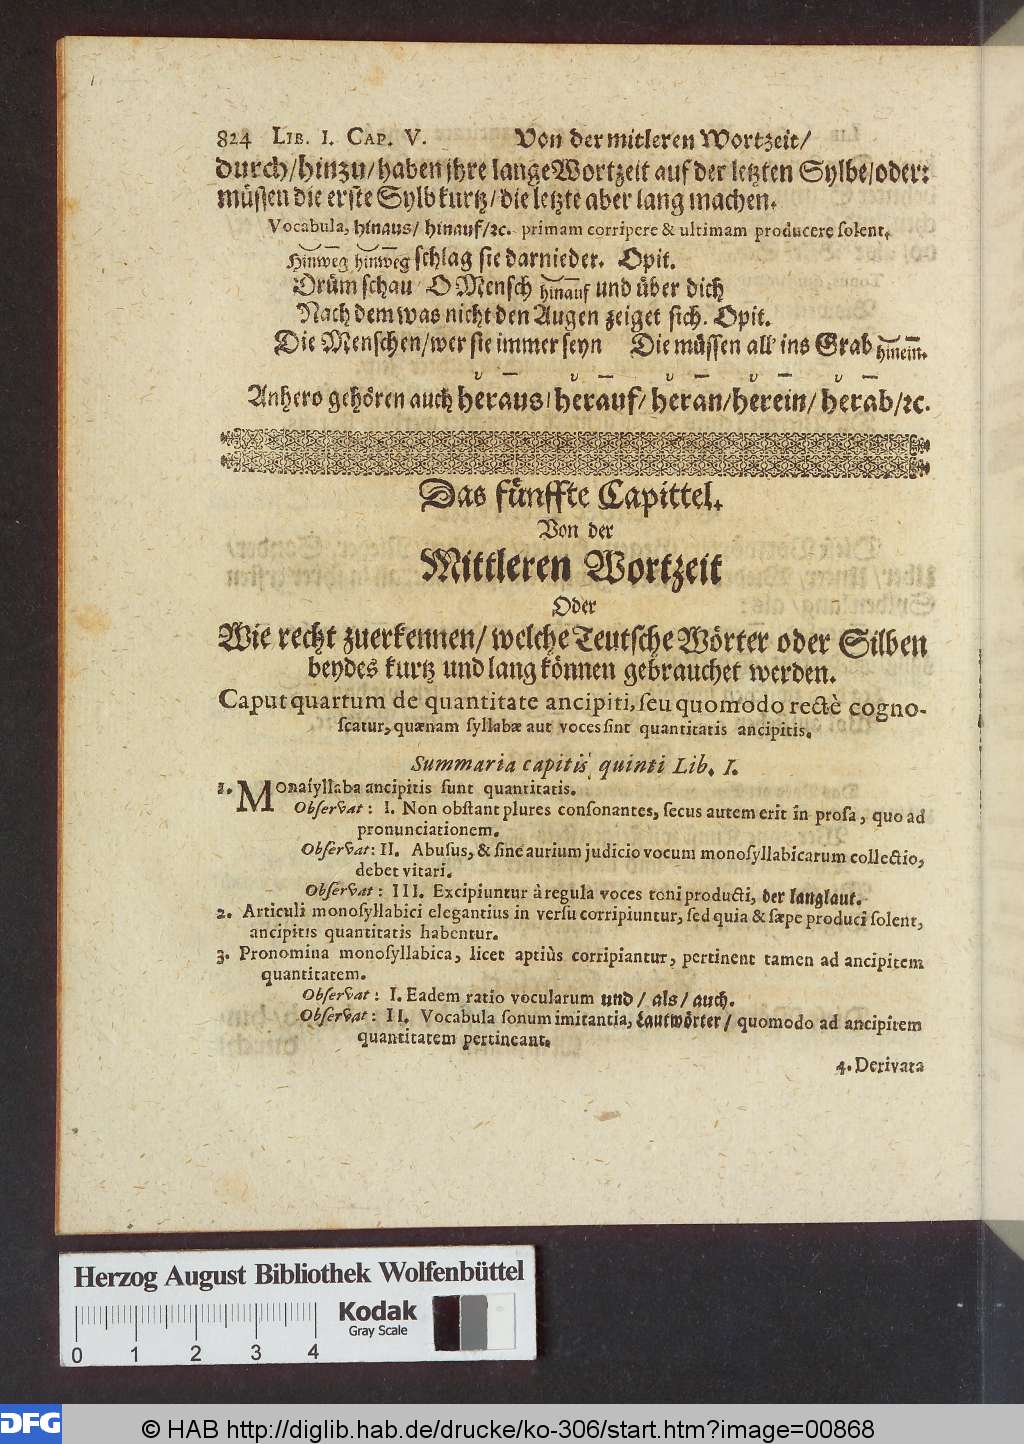 824 LIB. I. CAP. V. Von der mitleren Wortzeit/
durch/hinzu/haben jhre lange Wortzeit auf der letzten Sylbe/oder:
müssen die erste Sylb kurtz/die letzte aber lang machen.
Vocabula, hinaus/ hinauf/ꝛc. primam corripere & ultimam producere solent.
Hinweg hinweg schlag sie darnieder. Opit.
Drüm schau O Mensch hinauf und über dich
Nach dem was nicht den Augen zeiget sich. Opit.
Die Menschen/wer sie immer seyn Die müssen all' ins Grab hinein.
Anhero gehören auch heraus/herauf/heran/herein/herab/ꝛc.
Das fünffte Capittel.
Von der
Mittleren Wortzeit
Oder
Wie recht zuerkennen/welche Teutsche Wörter oder Silben
beydes kurtz und lang können gebrauchet werden.
Caput quartum de quantitate ancipiti, seu quomodo rectè cogno-
scatur, quænam syllabæ aut voces sint quantitatis ancipitis.
Summaria capitis quinti Lib. I.
1. Monasyllaba ancipitis sunt quantitatis.
Observat: I. Non obstant plures consonantes, secus autem erit in prosa, quo ad
pronunciationem.
Observat: II. Abusus, & sine aurium judicio vocum monosyllabicarum collectio,
debet vitari.
Observat: III. Excipiuntur à regula voces toni producti, der langlaut.
2. Articuli monosyllabici elegantius in versu corripiuntur, sed quia & sæpe produci solent,
ancipitis quantitatis habentur.
3. Pronomina monosyllabica, licet aptiùs corripiantur, pertinent tamen ad ancipitem
quantitatem.
Observat: I. Eadem ratio vocularum und/ als/ auch.
Observat: II. Vocabula sonum imitantia, Lautwörter/ quomodo ad ancipitem
quantitatem pertineant.
4. Derivata
Herzog August Bibliothek Wolfenbüttel
Kodak
Gray Scale
0 1 2 3 4
DFG © HAB http://diglib.hab.de/drucke/ko-306/start.htm?image=00868